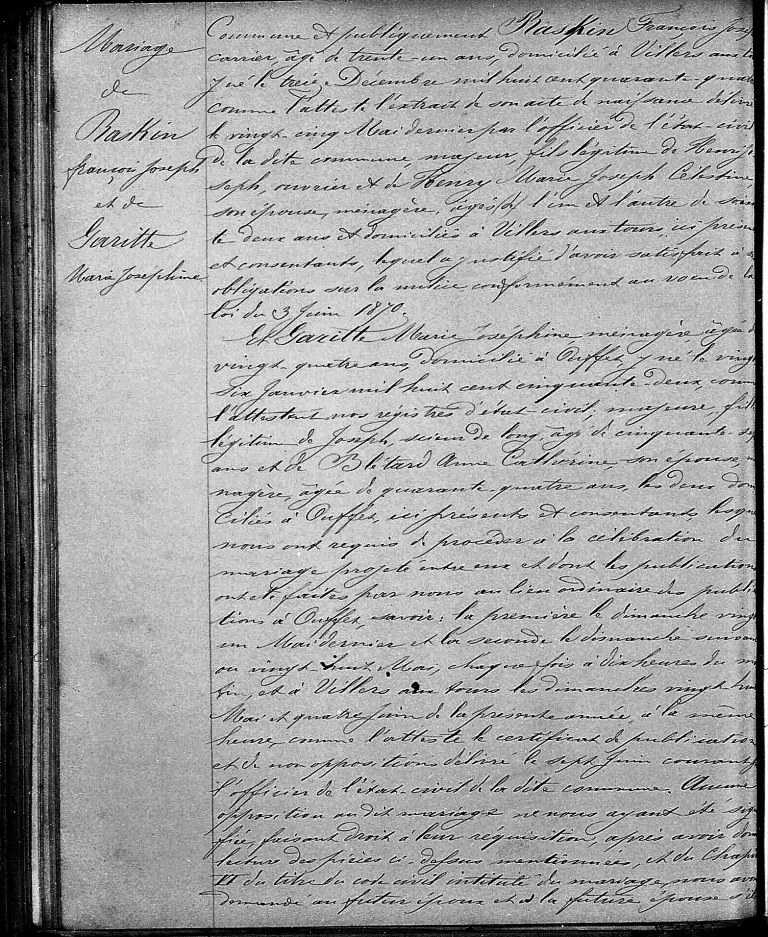 Mariage
de
Raskin
françois joseph
et de
Garitte
Marie Josephine
Commune et publiquement Raskin François Josep
carrier, âgé de trente-un ans, domicilié à Villers aux to
y né le treize Décembre mil huit cent quarante-quatre
comme l'atteste l'extrait de son acte de naissance délivré
le vingt-cinq Mai dernier par l'officier de l'état-civil
de la dite commune, majeur, fils légitime de Henri Jo
seph, ouvrier et de Henry Marie Joseph Celestine,
son épouse, ménagère, âgés, l'un et l'autre de soixan
te deux ans et domiciliés à Villers aux tours, ici présen
et consentants, lequel a justifié d'avoir satisfait à s
obligations sur la milice conformément au voeu de la
loi du 3 Juin 1870.
Et Garitte Marie Joséphine, ménagère, âgée d
vingt-quatre ans, domicilié à Ouffet, y né le vingt
six Janvier mil huit cent cinquante-deux, comm
l'attestent nos registres d'état-civil; majeure, fille
légitime de Joseph, scieur de long, âgé de cinquante-
ans et de Blétard Anne Cathérine, son épouse, m
nagère, âgée de quarante-quatre ans, les deux dom
ciliés à Ouffet, ici présents et consentants, lesque
nous ont requis de procéder à la célébration du
mariage projeté entre eux et dont les publications
ont été faites par nous au lieu ordinaire des publi
tions à Ouffet, savoir: la première le dimanche vingt
un Mai dernier et la seconde le dimanche suivan
ou vingt huit Mai, chaque fois à dix heures du ma
tin, et à Villers aux tours les dimanches vingt hui
Mai et quatre Juin de la présente année, à la même
heure, comme l'atteste le certificat de publication
et de non opposition délivré le sept Juin courant p
l'officier de l'état-civil de la dite commune. Aucune
opposition au dit mariage ne nous ayant été sign
fiée, faisant droit à leur réquisition, après avoir don
lecture des pièces ci-dessus mentionnées, et du Chapi
VI du titre du code civil intitulé du mariage, nous avon
demandé au futur époux et à la future épouse s'il